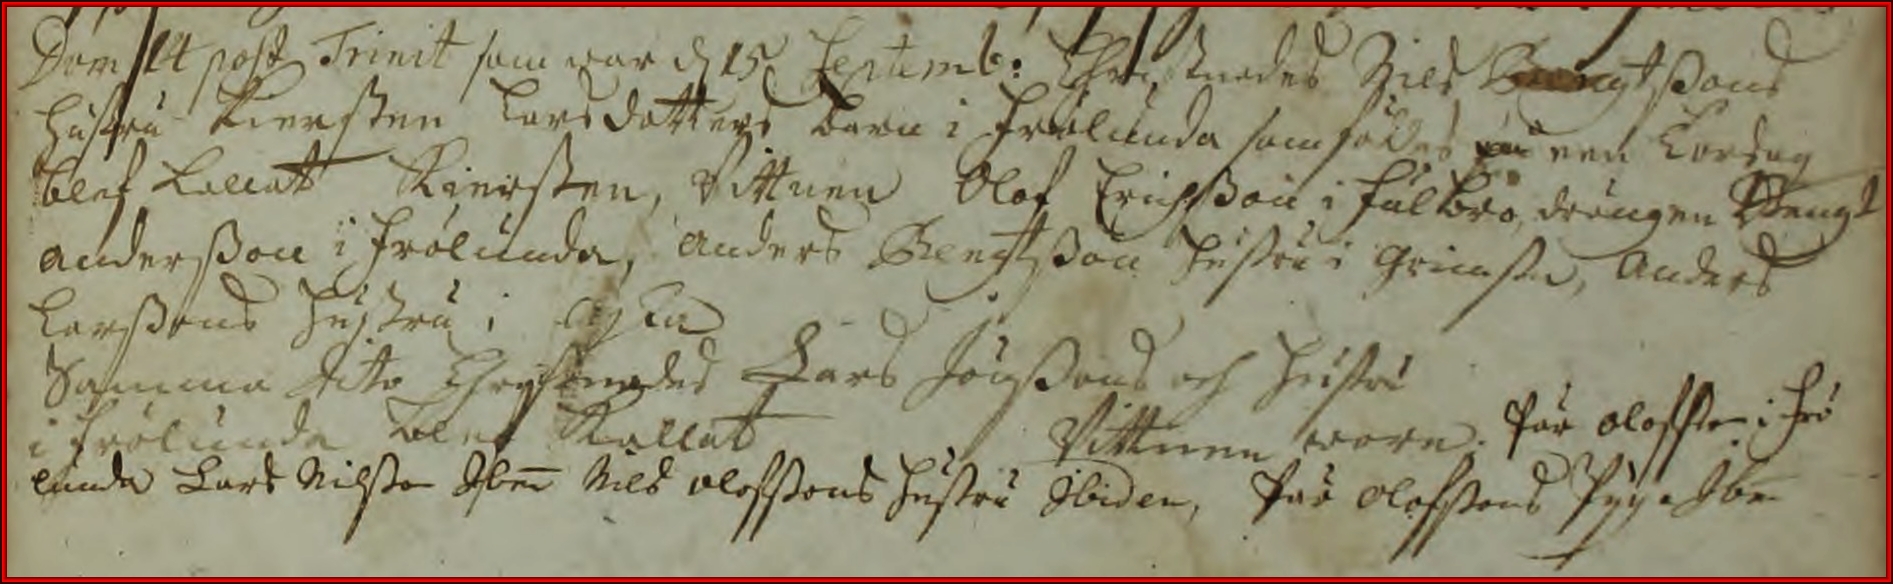 Dom 14 post Trinit som war d 15 Septemb: Christnades Nils Bengtßons
hustru Kierßten Lars dotters barn i Frölunda som föddes een Lördag
blef kallat Kierßten, Vittnen Olof Erichßon i Fulbro, drängen Bengt
Anderßon i Frölunda, Anders Bengtßon hustru i Grimsta, Anders
Larßons hustru i
Samma dito Chrystnades Lars Jönßons och hustru
i Frölunda blef Kallat Vittnen wore. Pär Olofßon i Frö
lunda Lars Nilßon Ibm Nils Olofßons hustru Ibidem, Pär Olofßons Pyga Ibm